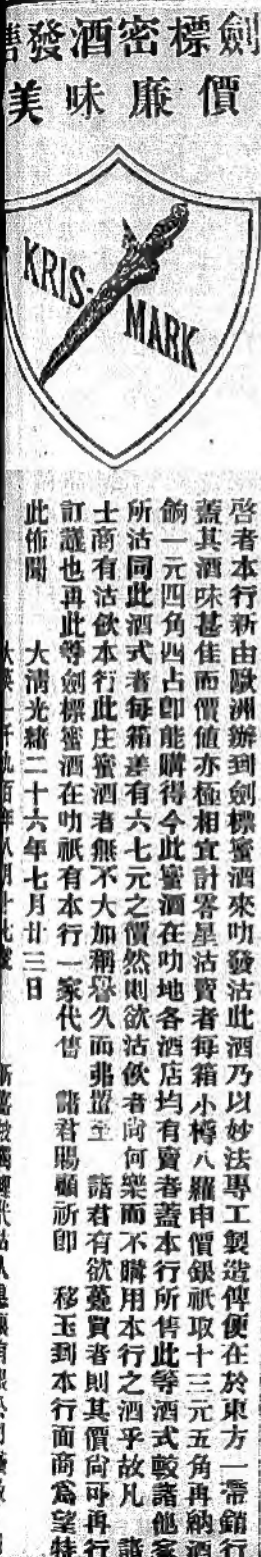 劍標密酒發售
價廉味美
KRIS-
MARK
啓者本行新由歐洲辦到劍標蜜酒來叻發沽此酒乃以妙法專工製造俾便在於東方一帶銷行
蓋其酒味甚佳而價値亦極相宜計零星沽賣者每箱小樽八羅申價銀祇取十三元五角再納酒
餉一元四角四占卽能購得今此蜜酒在叻地各酒店均有賣者蓋本行所售此等酒式較諸他家
所沽同此酒式者每箱差有六七元之價然則欲沽飲者尙何樂而不購用本行之酒乎故凡 諸
士商有沽飲本行此庄蜜酒者無不大加稱譽久而弗諠至 諸君有欲躉買者則其價尙可再行
訂議也再此等劍標蜜酒在叻祇有本行一家代售 諸君賜顧祈卽 移玉到本行面商爲望特
此佈聞 大淸光緖二十六年七月廿三日
大英一千九百年八月十七號